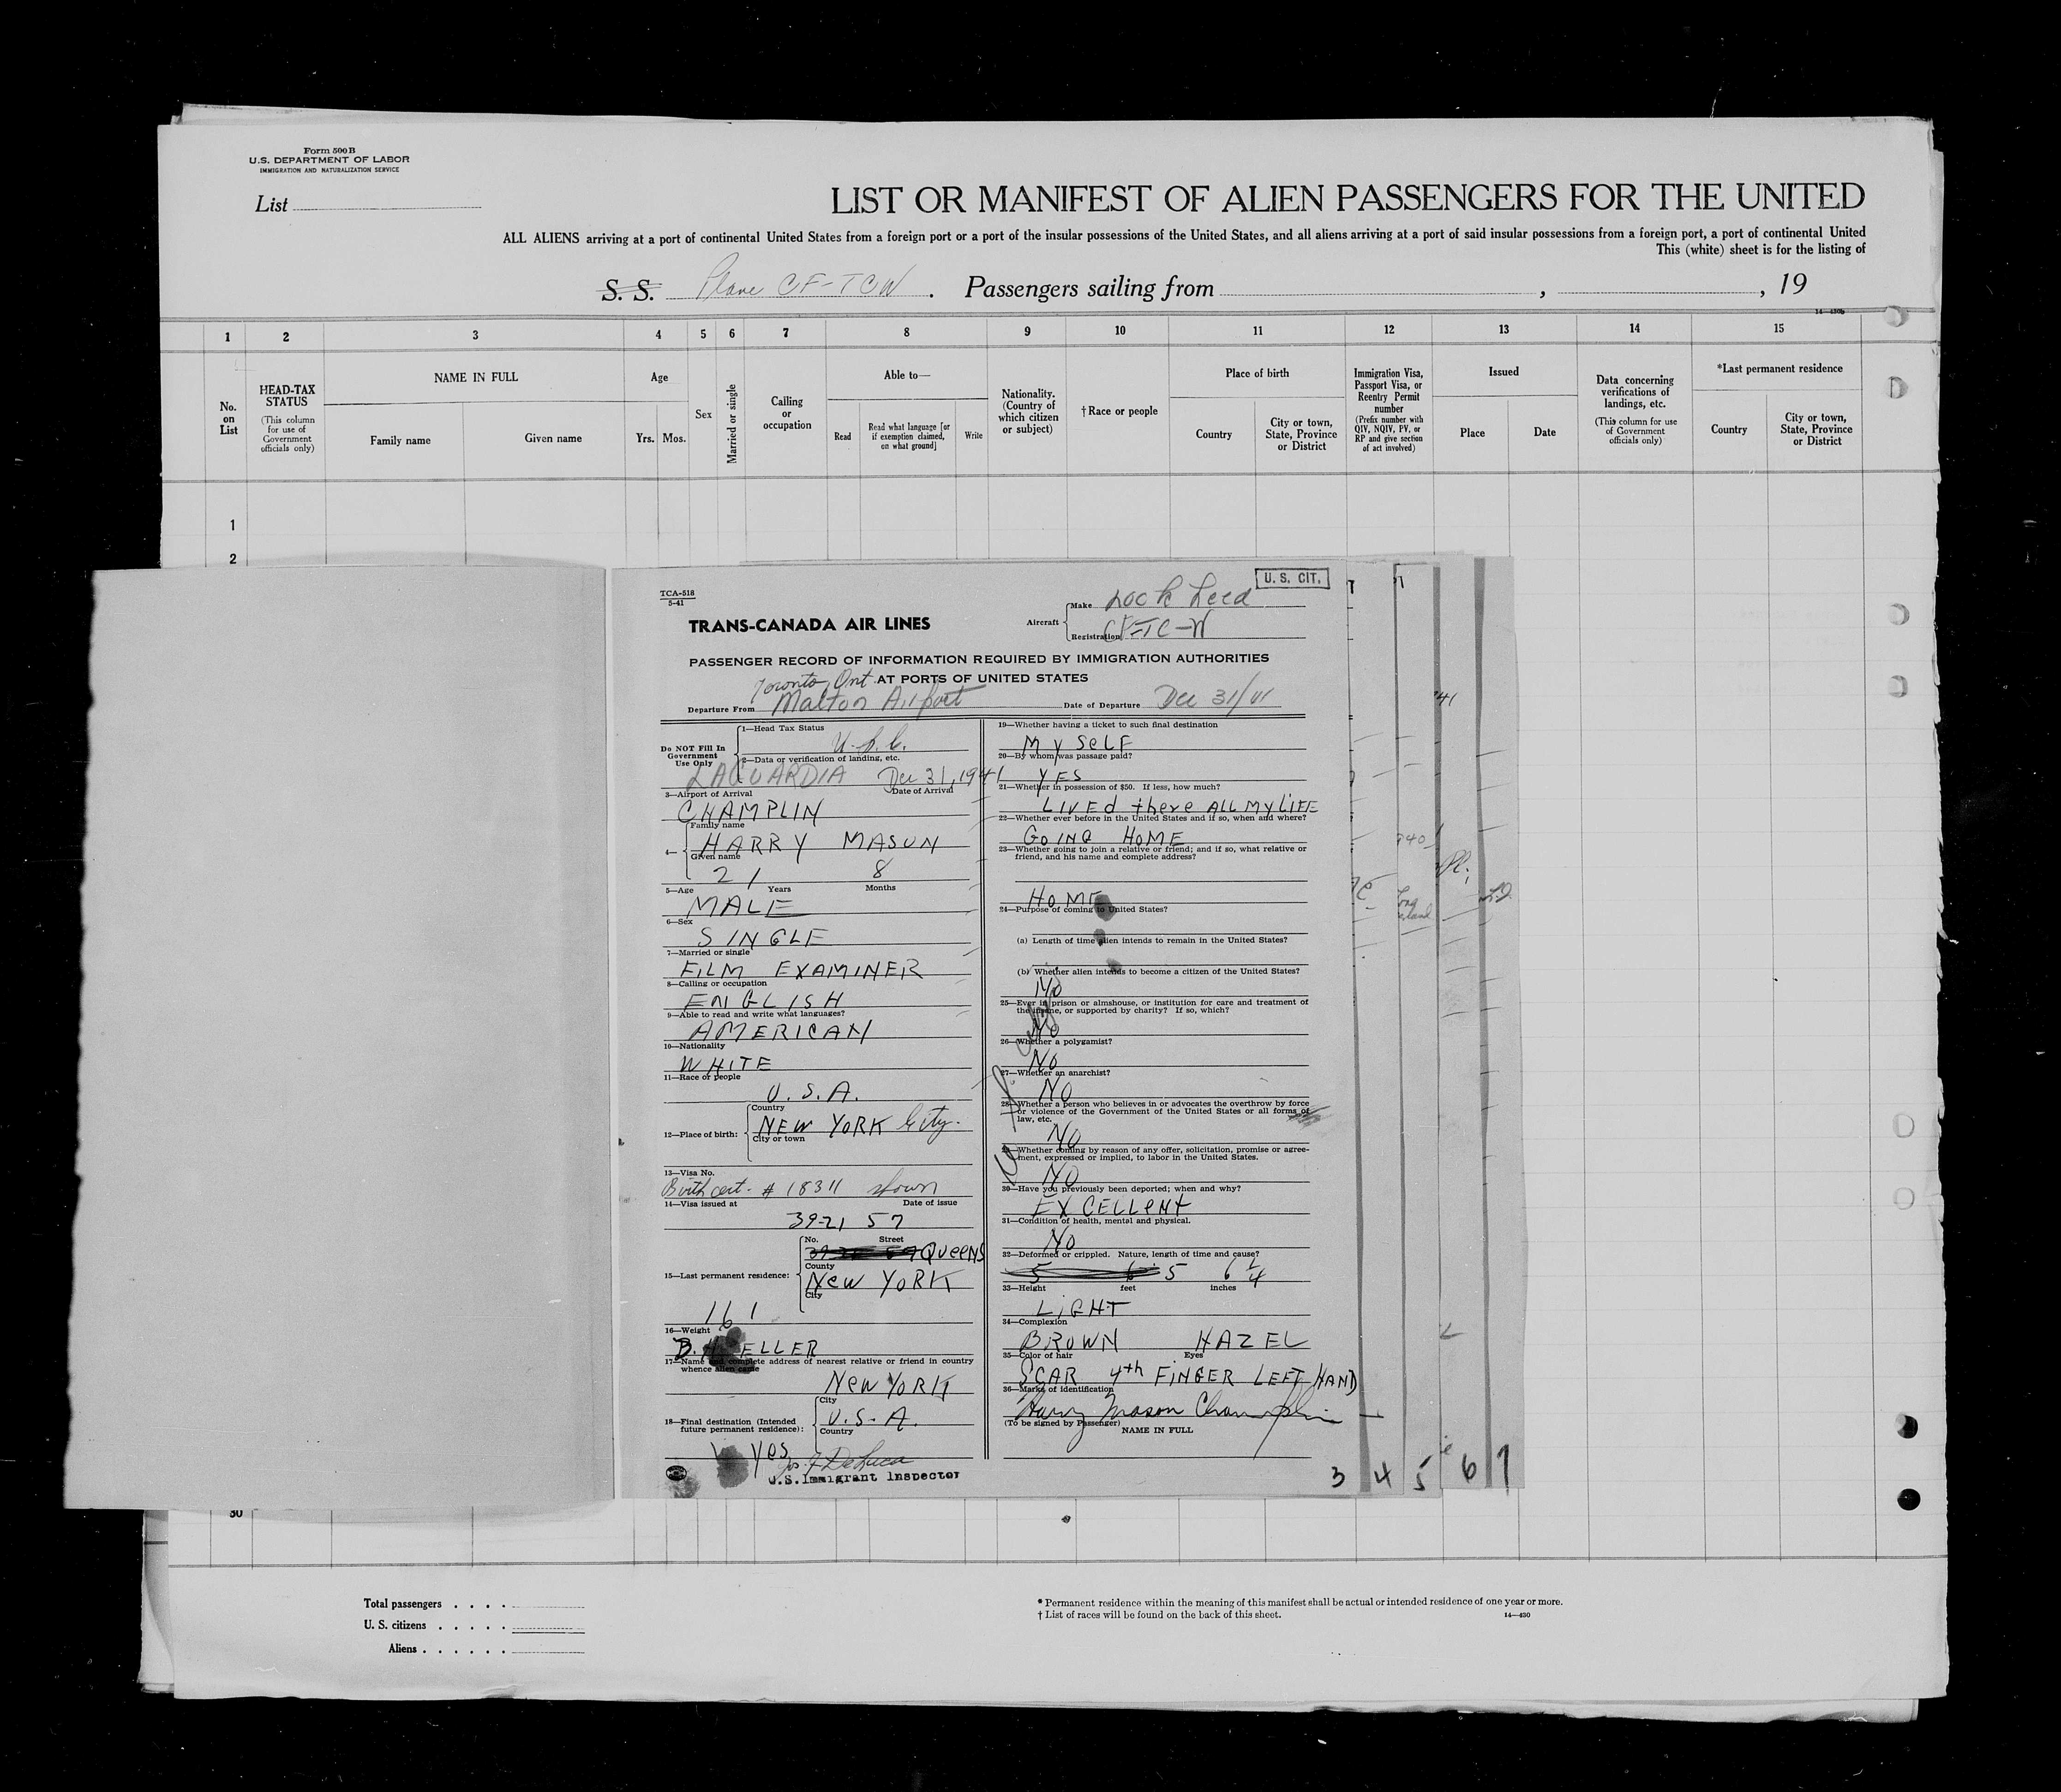 Form 500 B
U.S. DEPARTMENT OF LABOR
IMMIGRATION AND NATURALIZATION SERVICE
List
LIST OR MANIFEST OF ALIEN PASSENGERS FOR THE UNITED
ALL ALIENS arriving at a port of continental United States from a foreign port or a port of the insular possessions of the United States, and all aliens arriving at a port of said insular possessions from a foreign port, a port of continental United
This (white) sheet is for the listing of
S. S. Plane CF-TCW. Passengers sailing from , , 19
14—430b
1 2 3 4 5 6 7 8 9 10 11 12 13 14 15
No. on List
HEAD-TAX STATUS
(This column for use of Government officials only)
NAME IN FULL
Family name
Given name
Age
Yrs. Mos.
Sex
Married or single
Calling or occupation
Able to—
Read
Read what language [or if exemption claimed, on what ground]
Write
Nationality. (Country of which citizen or subject)
†Race or people
Place of birth
Country
City or town, State, Province or District
Immigration Visa, Passport Visa, or Reentry Permit number
(Prefix number with QIV, NQIV, PV, or RP and give section of act involved)
Issued
Place
Date
Data concerning verifications of landings, etc.
(This column for use of Government officials only)
*Last permanent residence
Country
City or town, State, Province or District
1
2
TCA-518
5-41
U. S. CIT.
TRANS-CANADA AIR LINES
Aircraft
Make Lock heed
Registration CF-TC-W
PASSENGER RECORD OF INFORMATION REQUIRED BY IMMIGRATION AUTHORITIES
AT PORTS OF UNITED STATES
Toronto, Ont
Departure From Malton Airport Date of Departure Dec 31/41
Do NOT Fill In Government Use Only
1—Head Tax Status
U.S.C.
2—Data or verification of landing, etc.
LAGUARDIA Dec 31, 1941
3—Airport of Arrival Date of Arrival
CHAMPLIN
Family name
4—
HARRY MASON
Given name
21 8
5—Age Years Months
MALE
6—Sex
SINGLE
7—Married or single
FILM EXAMINER
8—Calling or occupation
ENGLISH
9—Able to read and write what languages?
AMERICAN
10—Nationality
WHITE
11—Race or people
U.S.A.
Country
12—Place of birth: NEW YORK City.
City or town
13—Visa No.
Birth cert. # 18311 shown
14—Visa issued at Date of issue
39-21 57
No. Street
QUEENS
County
15—Last permanent residence: NEW YORK
City
161
16—Weight
17—Name and complete address of nearest relative or friend in country
whence alien came
NEW YORK
City
18—Final destination (Intended future permanent residence): U.S.A.
Country
yes
U.S. Immigrant Inspector
19—Whether having a ticket to such final destination
MYSELF
20—By whom was passage paid?
YES
21—Whether in possession of $50. If less, how much?
LIVED there ALL MY LIFE
22—Whether ever before in the United States and if so, when and where?
GOING HOME
23—Whether going to join a relative or friend; and if so, what relative or
friend, and his name and complete address?
HOME
24—Purpose of coming to United States?
(a) Length of time alien intends to remain in the United States?
(b) Whether alien intends to become a citizen of the United States?
NO
25—Ever in prison or almshouse, or institution for care and treatment of
the insane, or supported by charity? If so, which?
NO
26—Whether a polygamist?
NO
27—Whether an anarchist?
NO
28—Whether a person who believes in or advocates the overthrow by force
or violence of the Government of the United States or all forms of
law, etc.
NO
29—Whether coming by reason of any offer, solicitation, promise or agree-
ment, expressed or implied, to labor in the United States.
NO
30—Have you previously been deported; when and why?
EXCELLENT
31—Condition of health, mental and physical.
NO
32—Deformed or crippled. Nature, length of time and cause?
5 6 1/4
33—Height feet inches
LIGHT
34—Complexion
BROWN HAZEL
35—Color of hair Eyes
SCAR 4th FINGER LEFT HAND
36—Marks of identification
Harry Mason Champlin
(To be signed by Passenger)
NAME IN FULL
3 4 5 6 7
30
Total passengers . . . .
U. S. citizens . . . . .
Aliens . . . . . .
* Permanent residence within the meaning of this manifest shall be actual or intended residence of one year or more.
† List of races will be found on the back of this sheet.
14—430